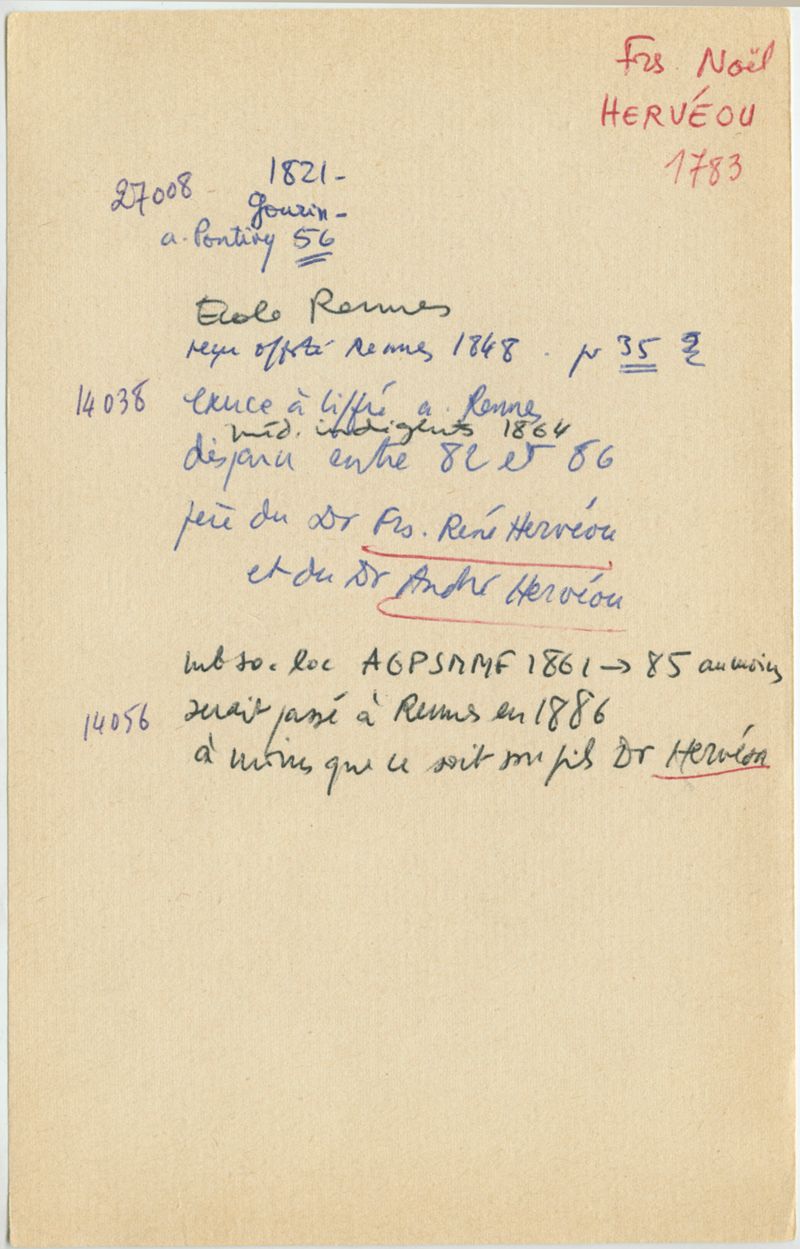 Frs Noël
HERVÉOU
1783
27008 - 1821 -
Gourin -
a. Pontivy 56
Ecole Rennes
reçu offsté Rennes 1848 . pr 35
14038 exerce à Liffré a. Rennes
méd. indigents 1864
disparu entre 82 et 86
père du Dr Frs. René Hervéou
et du Dr André Hervéou
mb soc loc AGPSMMF 1861 → 85 au moins
14056 serait passé à Rennes en 1886
à moins que ce soit son fils Dr Hervéou